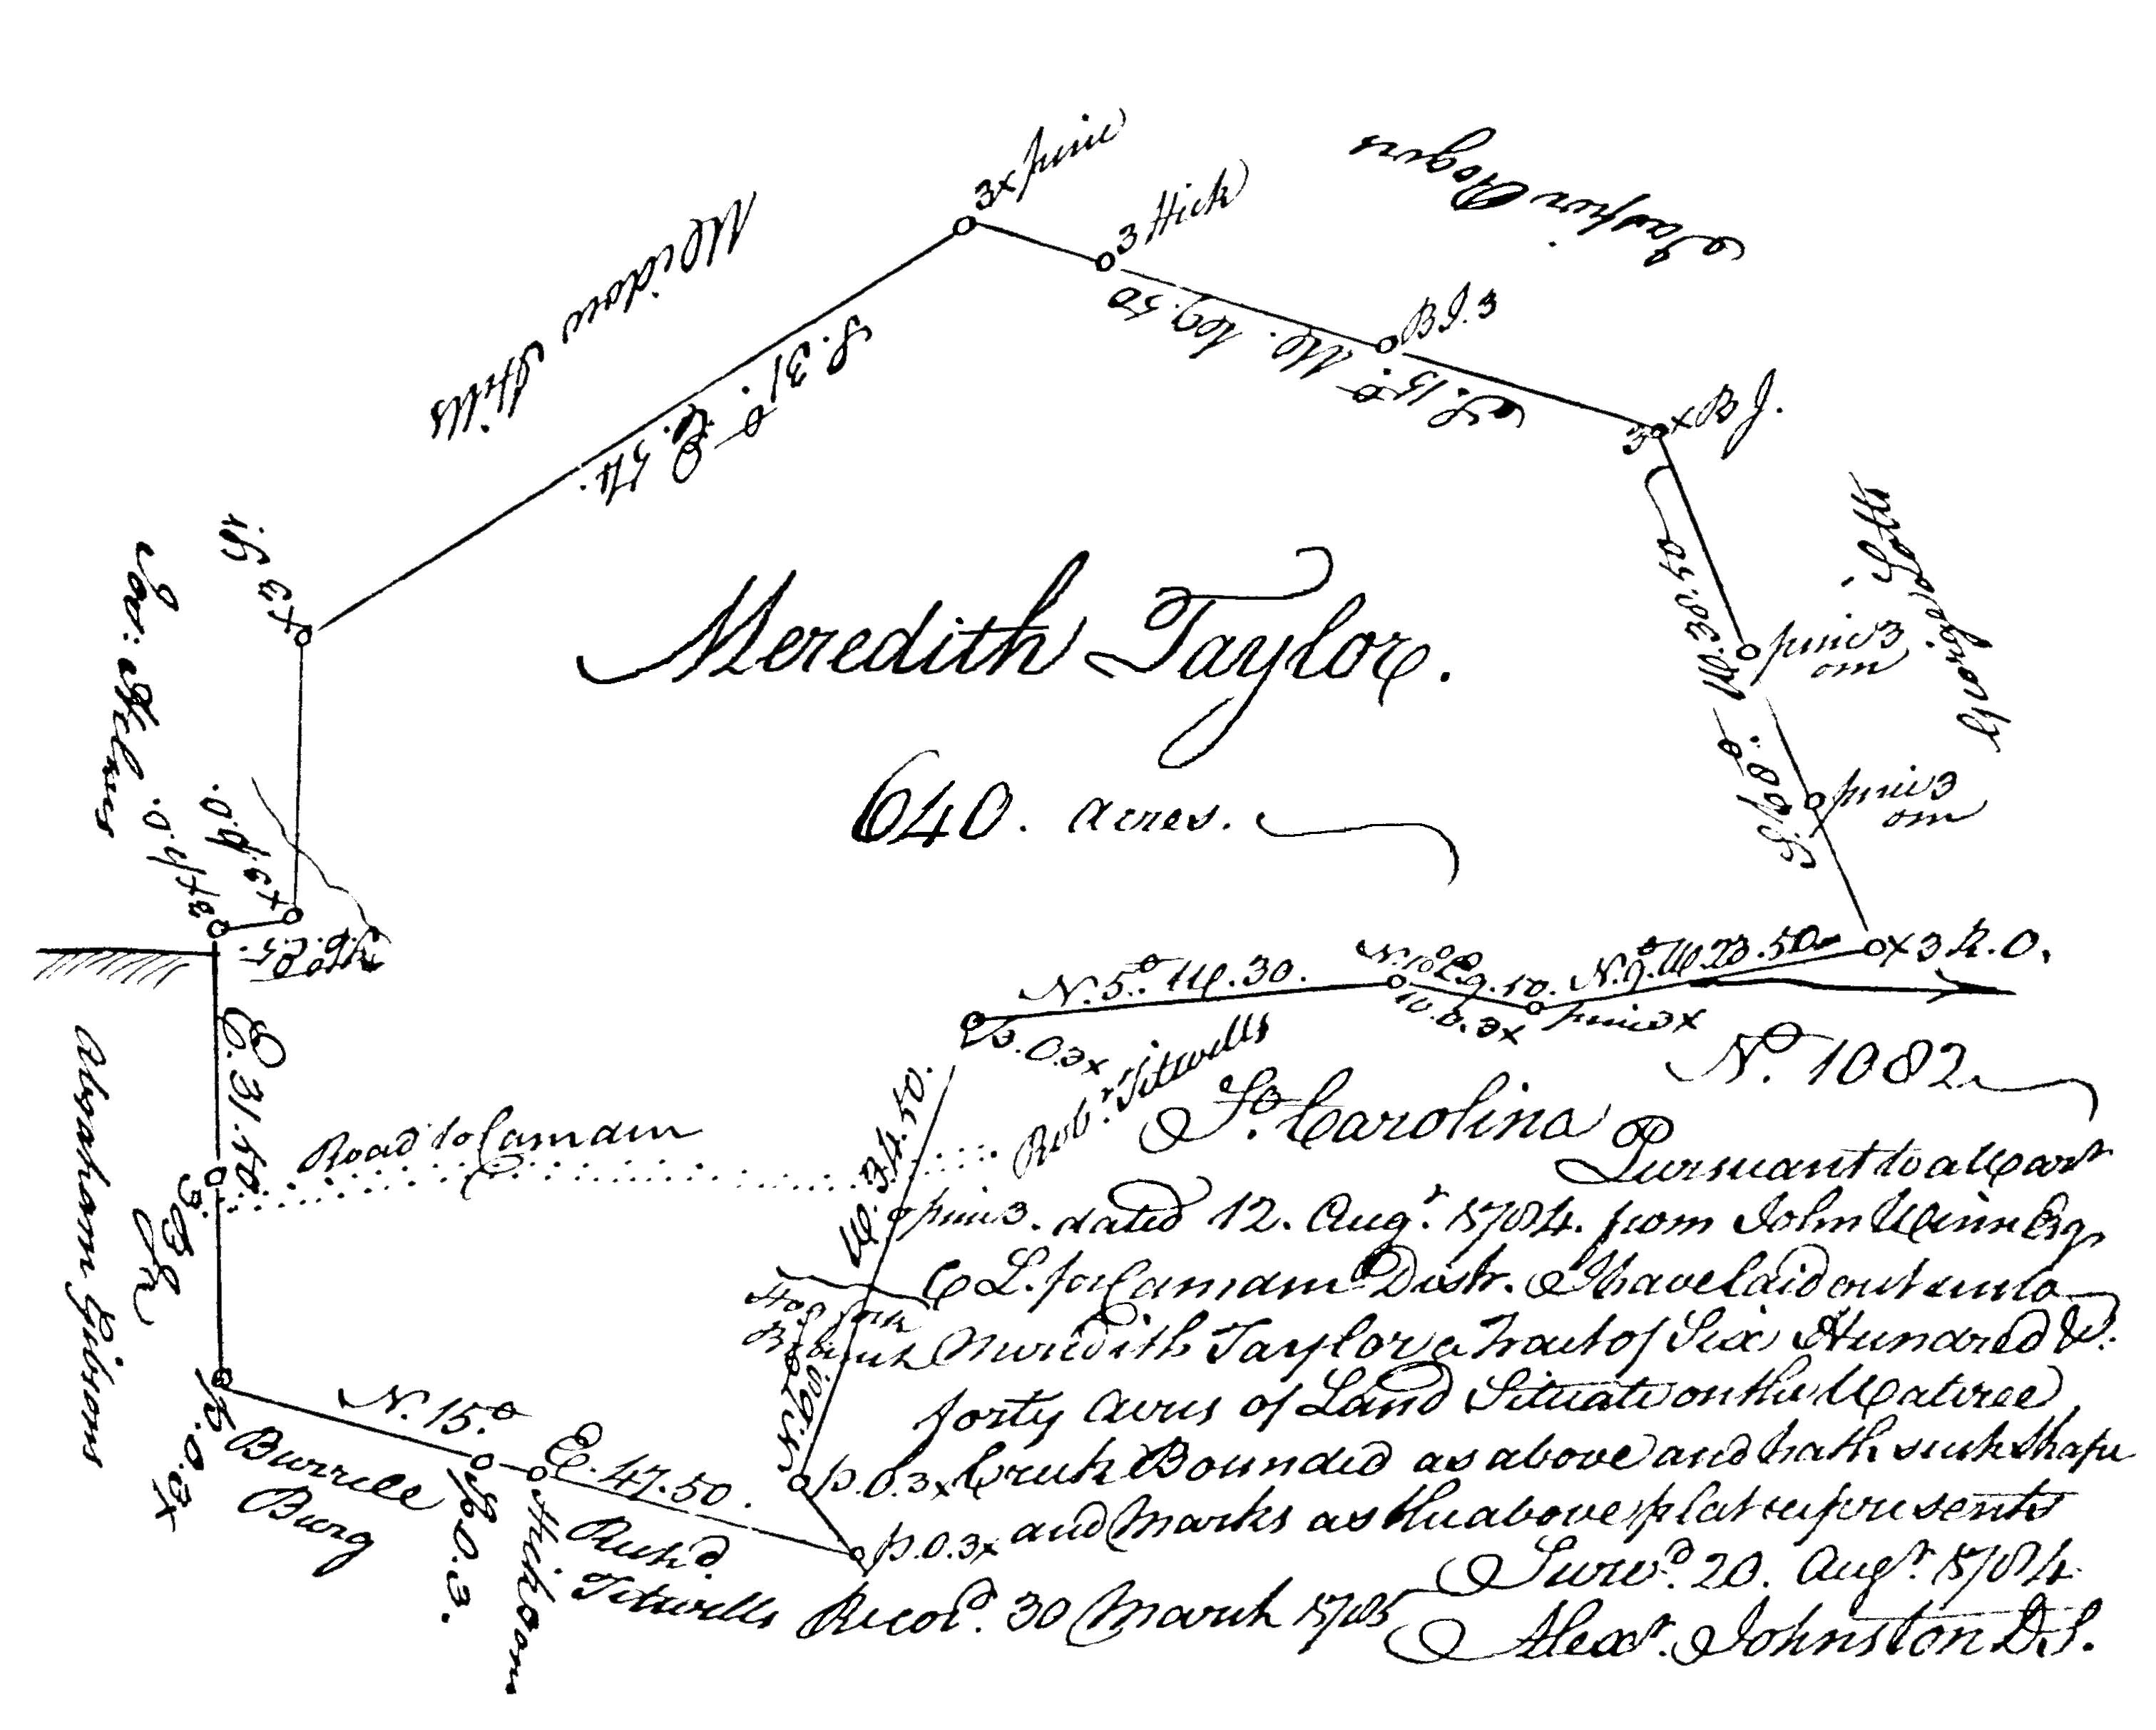 3x pine
3 Hick
Widow Hills
B J. 3
S. 31.° E. 54.
S. 15.° W. 49.50
3 x B J.
x3 Gi
pine 3
om
Meredith Taylor.
640. acres.
pine 3
om
3x p. O.
x3 p. O.
N. 5.° W. 30.
N. 10° E. 9. 50.
N. 9.° W. 23. 50
x3 R. O.
E. 31. 50
B. O. 3x
W. O. 3x
pine 3x
Robt. Titwells
No. 1082
So. Carolina
Pursuant to a Warrt
Road to Camden
W. 34. 50.
pine 3.
dated 12. Augt. 1784. from John Winn Esqr
3. B Jk
Abraham Gibsons
C L. for Camden Distr. I have laid out unto
Hog fork
Branch
Meredith Taylor a Tract of Six Hundred &.
forty acres of Land Situate on the Wateree
N. 15.° E. 47. 50.
p. O. 3x
Creek Bounded as above and hath such Shape
p. O. 3x
Burrell
Burg
p. O. 3.
Hick om
Richd.
Titwells
p. O. 3x
and Marks as the above plat represents
Survd. 20. Augt. 1784
Recod. 30 March 1785
Alexr. Johnston D. S.